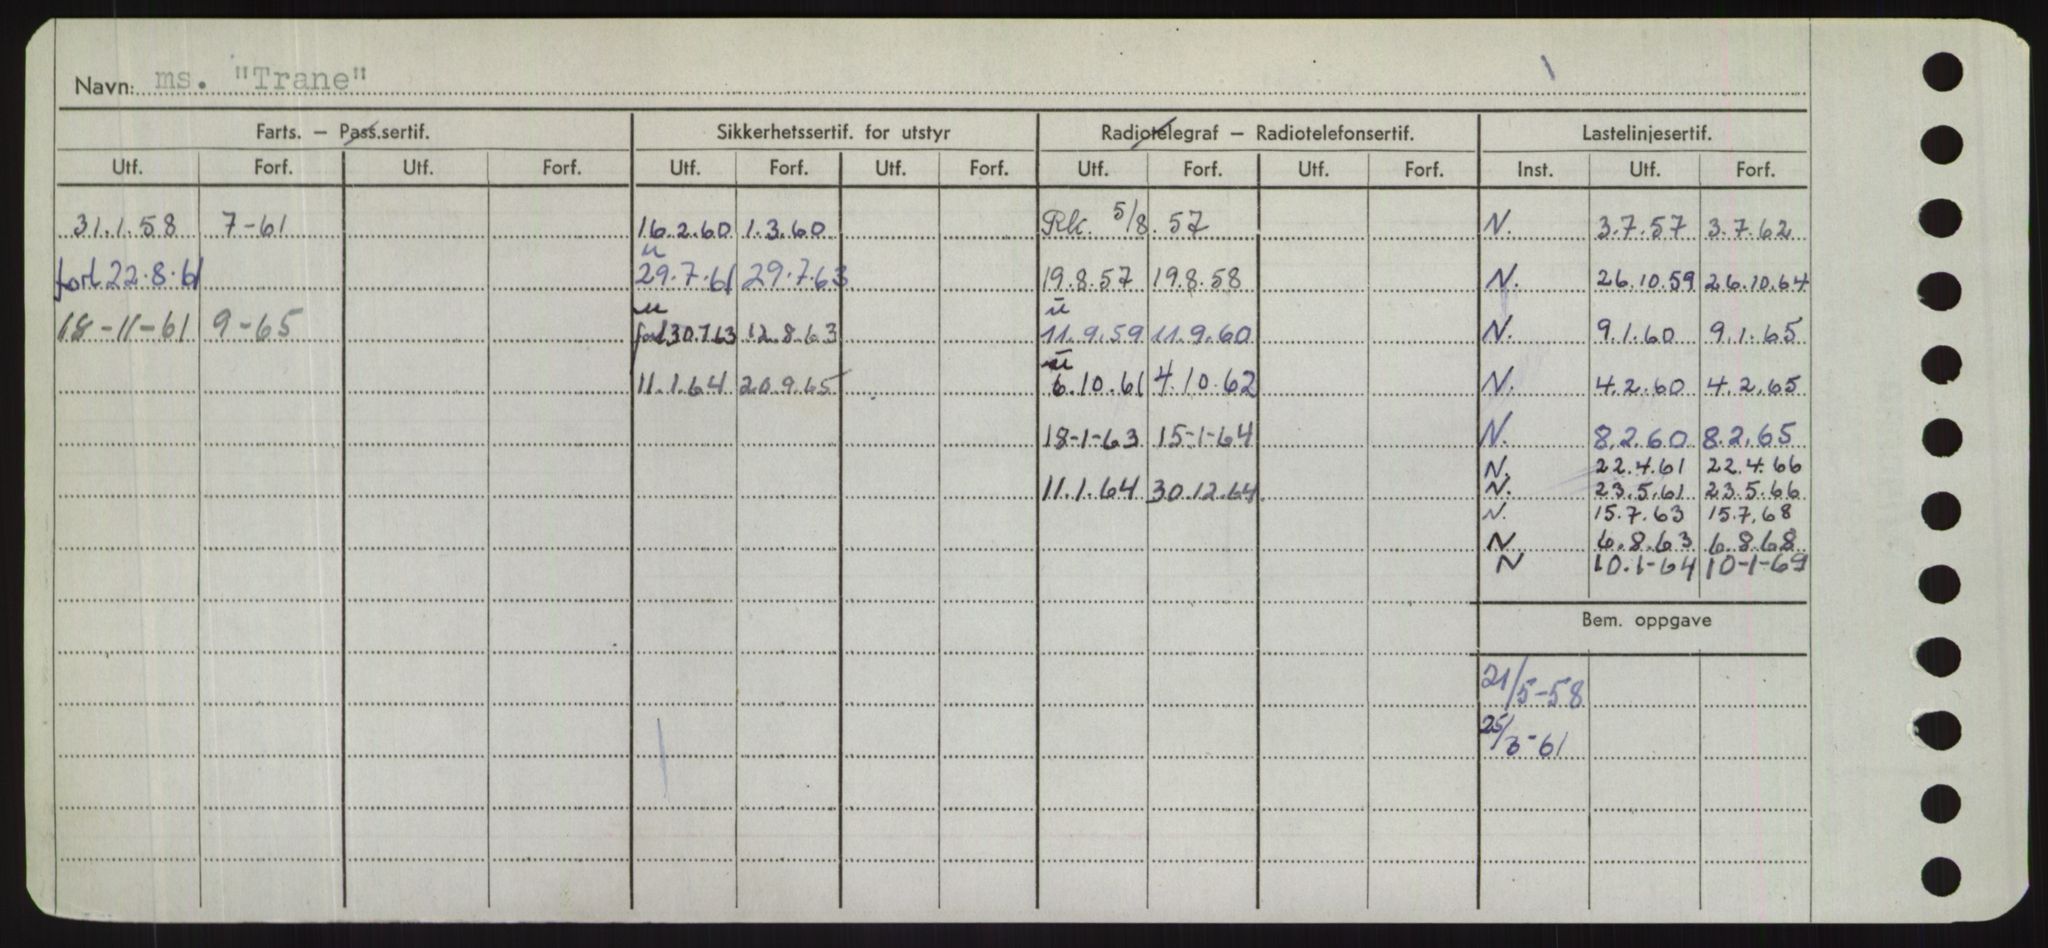 Navn: ms. "Trane"
Farts. – Pass.sertif. Sikkerhetssertif. for utstyr Radiotelegraf – Radiotelefonsertif. Lastelinjesertif.
Utf. Forf. Utf. Forf. Utf. Forf. Utf. Forf. Utf. Forf. Utf. Forf. Inst. Utf. Forf.
31.1.58 7-61 16.2.60 1.3.60 Rk 5/8.57 N. 3.7.57 3.7.62
u
forl 22.8.61 29.7.61 29.7.63 19.8.57 19.8.58 N. 26.10.59 26.10.64
u ū
18-11-61 9-65 forl 30.7.63 12.8.63 11.9.59 11.9.60 N. 9.1.60 9.1.65
ū
11.1.64 20.9.65 6.10.61 4.10.62 N. 4.2.60 4.2.65
18-1-63 15-1-64 N. 8.2.60 8.2.65
N. 22.4.61 22.4.66
11.1.64 30.12.64 N. 23.5.61 23.5.66
N. 15.7.63 15.7.68
N 6.8.63 6.8.68
N 10.1-64 10-1-69
Bem. oppgave
21/5-58
25/3-61